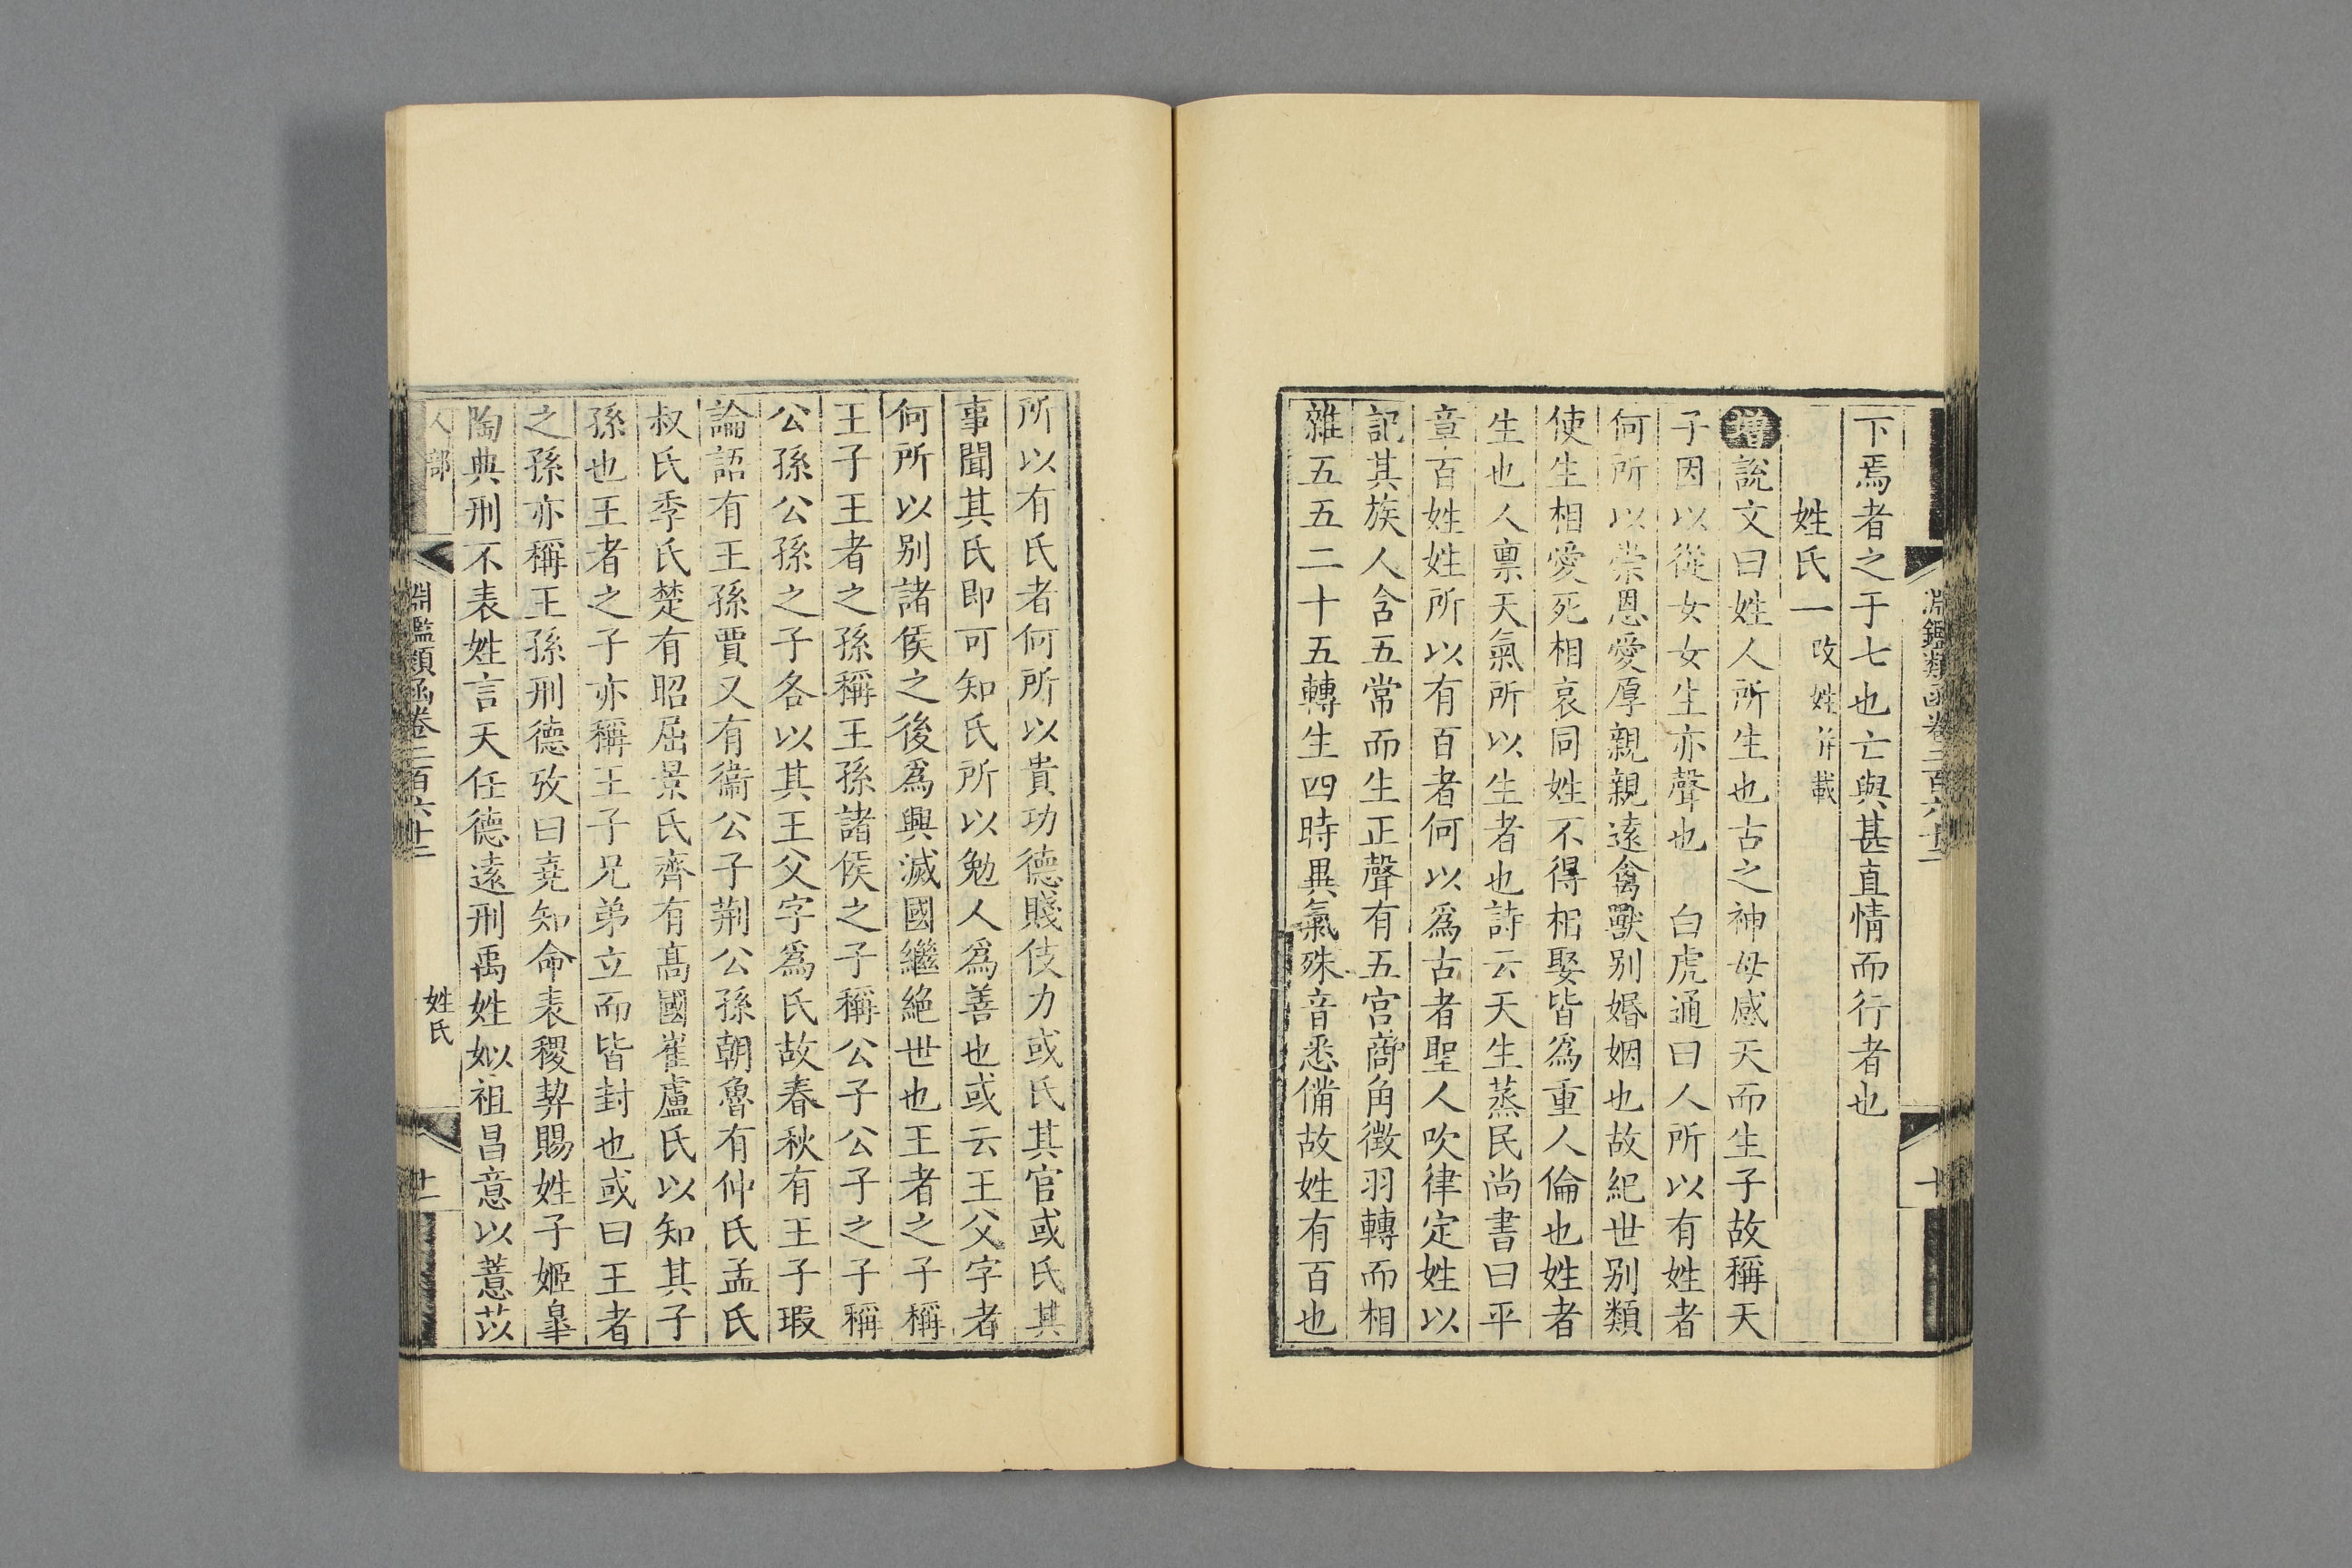 淵鑑類函卷二百六十二
下焉者之于七也亡與甚直情而行者也
姓氏一 改姓并載
增說文曰姓人所生也古之神母感天而生子故稱天
子因以從女女生亦聲也 白虎通曰人所以有姓者
何所以崇恩愛厚親親遠禽獸别婚姻也故紀世别類
使生相愛死相哀同姓不得相娶皆爲重人倫也姓者
生也人禀天氣所以生者也詩云天生蒸民尚書曰平
章百姓姓所以有百者何以爲古者聖人吹律定姓以
記其族人含五常而生正聲有五宫商角徵羽轉而相
雜五五二十五轉生四時異氣殊音悉備故姓有百也
所以有氏者何所以貴功德賤伎力或氏其官或氏其
事聞其氏即可知氏所以勉人爲善也或云王父字者
何所以别諸侯之後爲興滅國繼絶世也王者之子稱
王子王者之孫稱王孫諸侯之子稱公子公子之子稱
公孫公孫之子各以其王父字爲氏故春秋有王子瑕
論語有王孫賈又有衞公子荆公孫朝魯有仲氏孟氏
叔氏季氏楚有昭屈景氏齊有髙國崔盧氏以知其子
孫也王者之子亦稱王子兄弟立而皆封也或曰王者
之孫亦稱王孫刑德攷曰堯知命表稷契賜姓子姬臯
陶典刑不表姓言天任德遠刑禹姓姒祖昌意以薏苡
人部 淵鑑類函卷二百六十二 姓氏